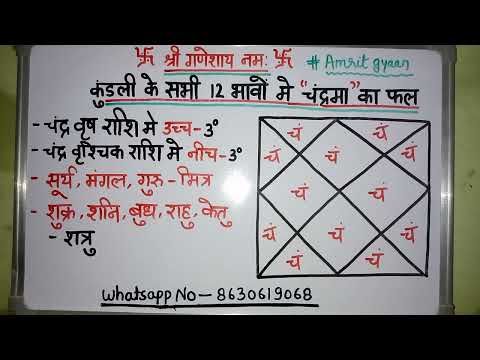 卐 श्री गणेशाय नमः 卐
# Amrit gyaan
कुंडली के सभी 12 भावों मे "चंद्रमा" का फल
- चंद्र वृष राशि मे उच्च - 3°
- चंद्र वृश्चिक राशि मे नीच - 3°
- सूर्य, मंगल, गुरु - मित्र
- शुक्र, शनि, बुध, राहु, केतु
- शत्रु
चं चं
चं चं चं
चं चं
चं चं चं
चं चं
Whatsapp No - 8630619068